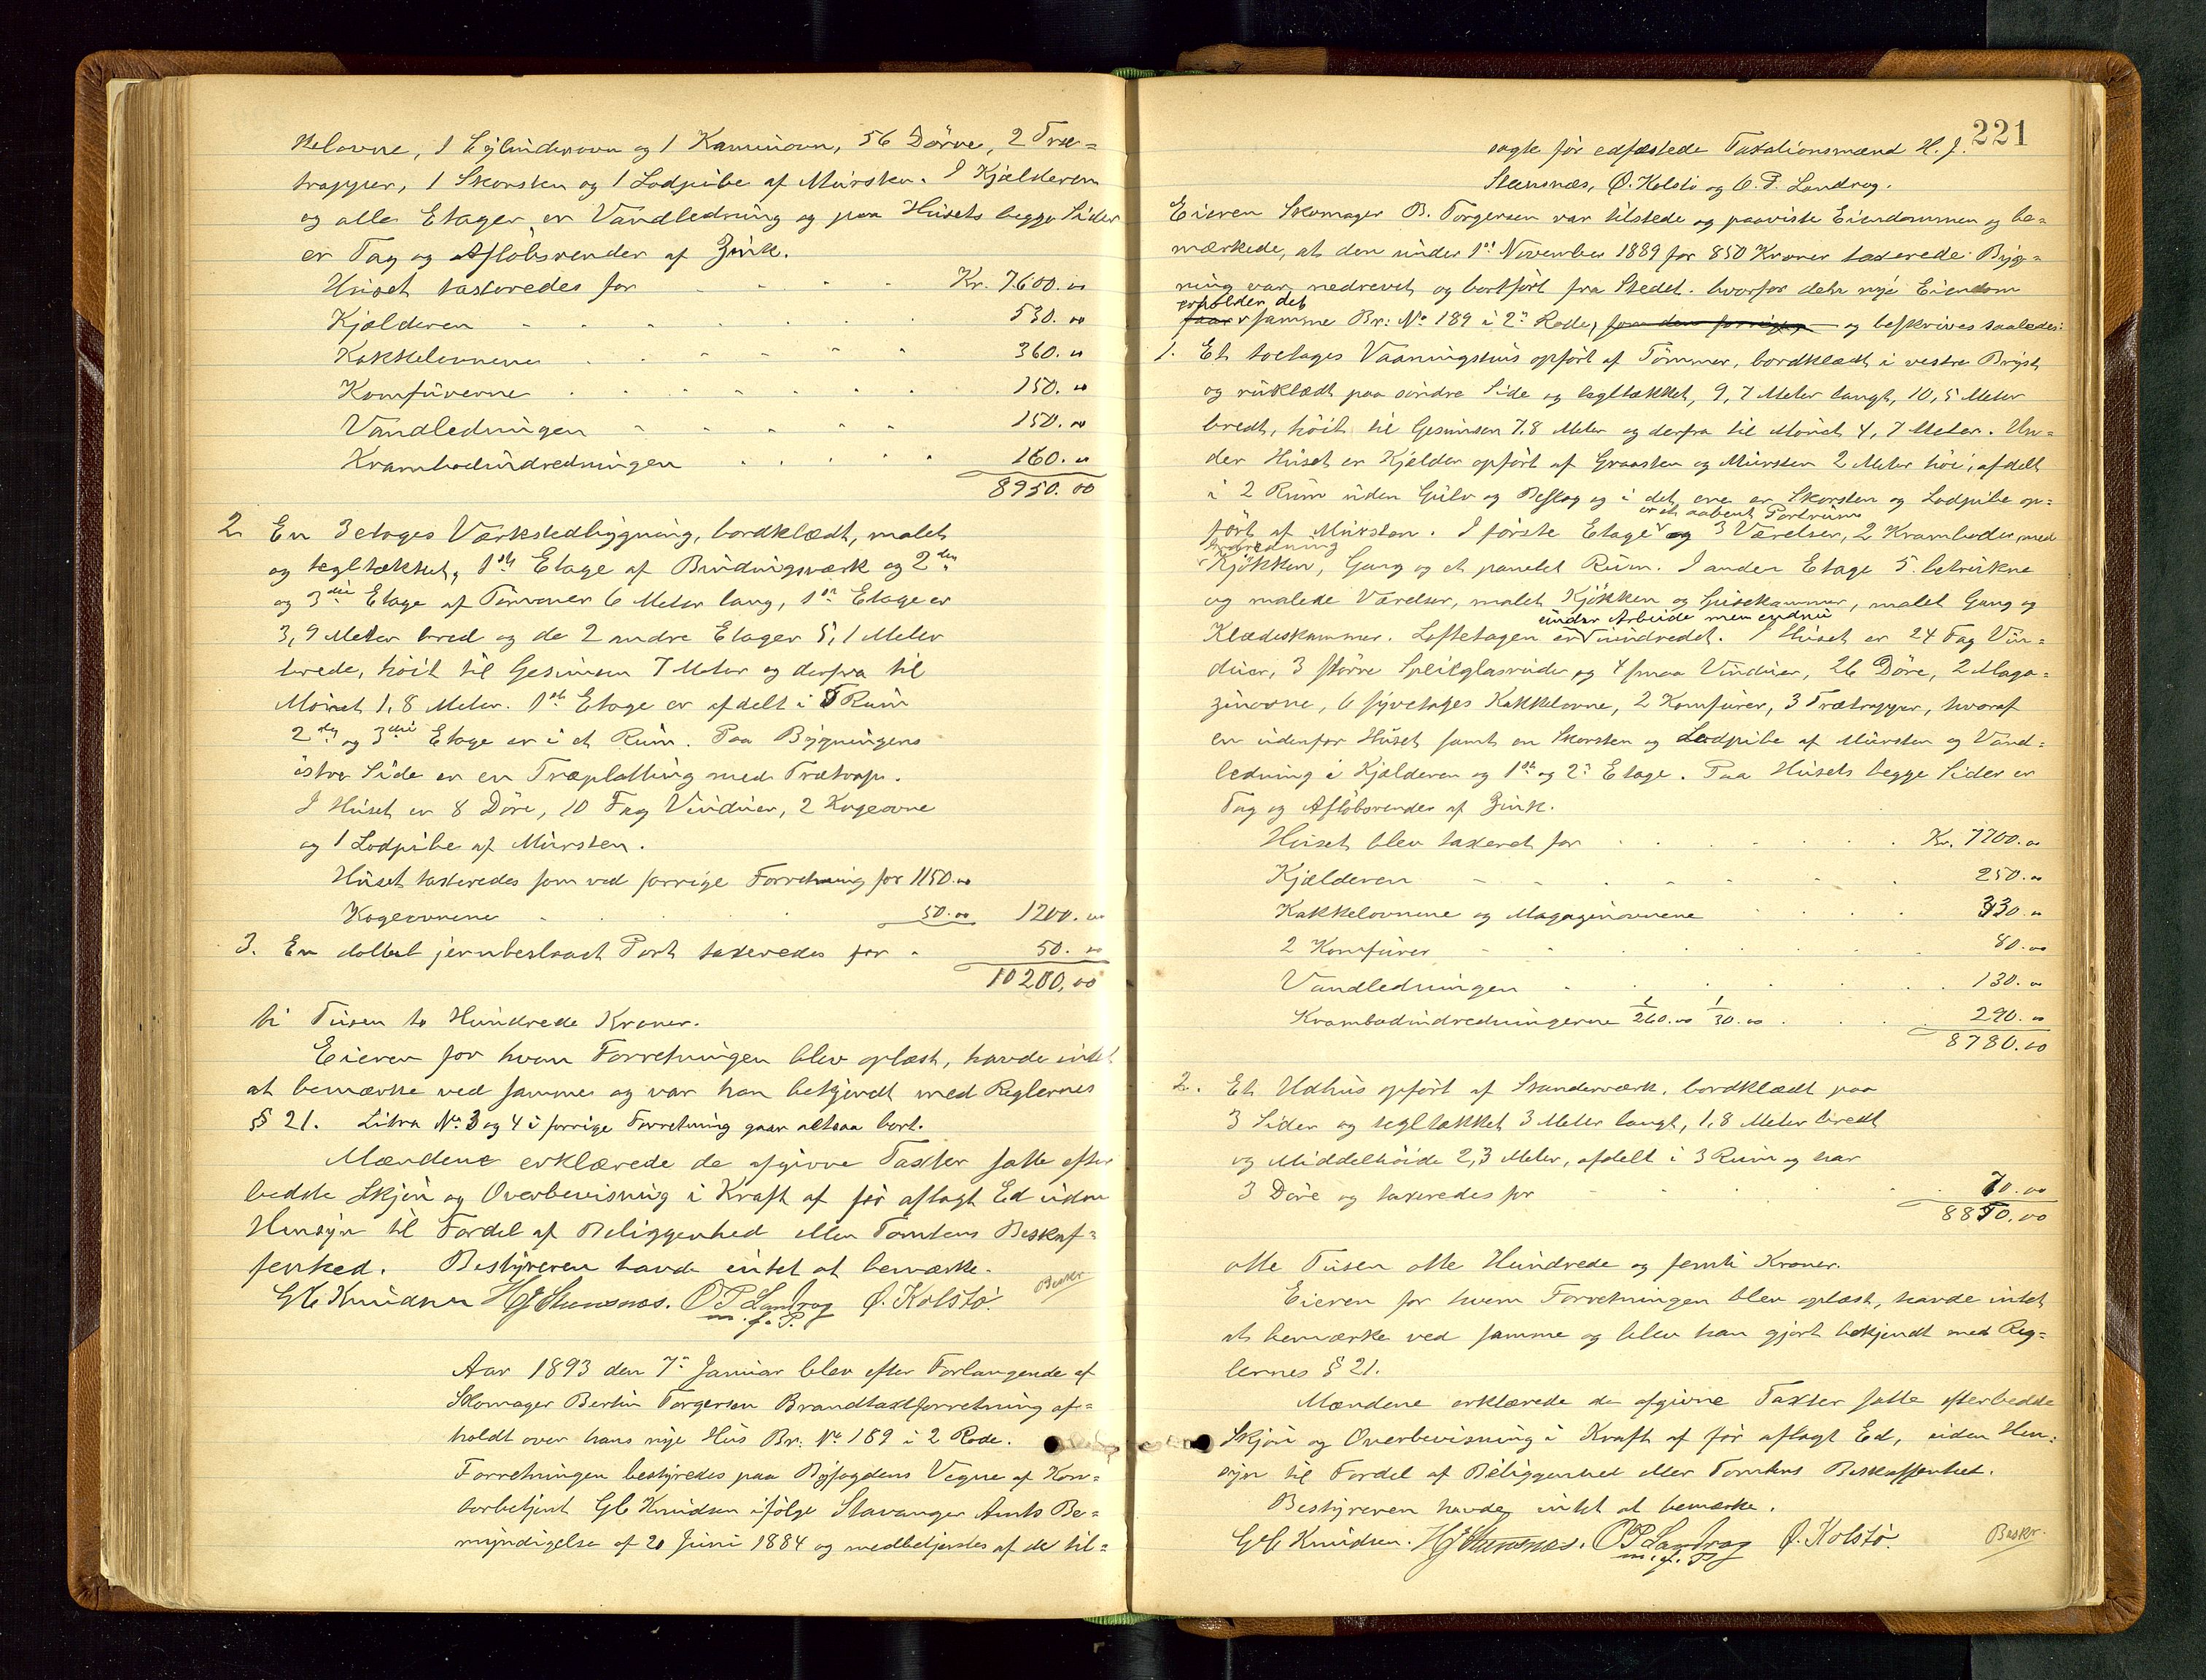 kelovne, 1 Cylinderovn og 1 Kaminovn, 56 Dörve, 2 Træ=
trapper, 1 Skorsten og 1 Lodpibe af Mursten. I Kjælderen
og alle Etager er Vandledning og paa Husets begge Sider
er Tag og Afløbsrender af Zink.
Huset taxeredes for Kr. 7600.00
Kjælderen 530.00
Kakkelovnene 360.00
Komfurerne 150.00
Vandledningen 150.00
Krambodindredningen 160.00
8950.00
2. En 3 etages Værkstedbygning, bordklædt, malet
og tegltækket, 1ste Etage af Bindingsværk og 2den
og 3die Etage af Tømmer 6 Meter lang, 1ste Etage er
3,9 Meter bred og de 2 andre Etager 5,1 Meter
brede, höit til Gesimsen 7 Meter og derfra til
Mönet 1,8 Meter. 1ste Etage er afdelt i Rum
2den og 3die Etage er i et Rum. Paa Bygningens
östre Side er en Træplatting med Trætrap.
I Huset er 8 Döre, 10 Fag Vinduer, 2 Kogeovne
og 1 Lodpibe af Mursten.
Huset taxeredes som ved forrige Forretning for 1150.00
Kogeovnene 50.00 1200.00
3. En dobbelt jernbeslaaet Port taxeredes for 50.00
10200,00
ti Tusen to Hundrede Kroner.
Eieren for hvem Forretningen blev oplæst, havde intet
at bemærke ved samme og var han bekjendt med Reglernes
§ 21. Litra No. 3 og 4 i forrige Forretning gaar altsaa bort.
Mændene erklærede de afgivne Taxter satte efter
bedste Skjön og Overbevisning i Kraft af för aflagt Ed uden
Hensyn til Fordel af Beliggenhed eller Tomtens Beskaf=
fenhed. Bestyreren havde intet at bemærke.
Gb Knudsen HJ Stensnæs. OP Landrog Ö. Kolstö. Beskr
m. f. P.
Aar 1893 den 7de Januar blev efter Forlangende af
Skomager Bertin Torgersen Brandtaxtforretning af=
holdt over hans nye Hus Br. No 189 i 2 Rode.
Forretningen bestyredes paa Byfogdens Vegne af Kon=
torbetjent Gb Knudsen ifölge Stavanger Amts Be=
myndigelse af 20 Juni 1884 og medbetjentes af de til=
221
sagte för edfæstede Taxationsmænd H. J.
Stensnæs, Ö. Kolstö og O. P. Landrog.
Eieren Skomager B. Torgersen var tilstede og paaviste Eiendommen og be=
mærkede, at den under 1ste November 1889 for 850 Kroner taxerede Byg=
ning var nedrevet og bortfört fra Stedet. hvorfor dette nye Eiendom
erholder det
faar samme Br: No 189 i 2den Rode, som den forrige og beskrives saaledes:
1. Et toetages Vaaningshus opfört af Tömmer, bordklædt i vestre Bryst
og rukledt paa söndre Side og tegltækket, 9,7 Meter langt, 10,5 Meter
bredt, höit til Gesimsen 7,8 Meter og derfra til Mönet 4,7 Meter. Un=
der Huset er Kjælder opfört af Graasten og Mursten 2 Meter höi, afdelt
i 2 Rum uden Gulv og Beslag og i det ene er Skorsten og Lodpibe op=
er et aabent Portrum
fört af Mursten. I förste Etage og 3 Værelser, 2 Kramboder, med
Indredning
Kjökken, Gang og et panelet Rum. I anden Etage 5 betrukne
og malede Værelser, malet Kjökken og Spisekammer, malet Gang og
under Arbeide men endnu
Klædeskammer. Loftetagen er uindredet. I Huset er 24 Fag Vin=
duer, 3 större Speilglasruder og 4 smaa Vinduer, 26 Döre, 2 Maga=
zinovne, 6 fyretages Kakkelovne, 2 Komfurer, 3 Trætrapper, hvoraf
en udenfor Huset samt en Skorsten og Lodpibe af Mursten og Vand=
ledning i Kjælderen og 1ste og 2den Etage. Paa Husets begge Sider er
Tag og Aflöbsrender af Zink.
Huset blev taxeret for Kr. 7700.00
Kjælderen 250.00
Kakkelovnene og Magazinovnene 330.00
2 Komfurer 80.00
Vandledningen 130.00
Krambodindredningerne 1/260.00 1/30.00 290.00
8780.00
2. Et Udhus opfört af Skanderværk, bordklædt paa
3 Sider og tegltækket 3 Meter langt, 1,8 Meter bredt
og Middelhöide 2,3 Meter, afdelt i 3 Rum og har
3 Döre og taxeredes for 70.00
8850.00
otte Tusen otte Hundrede og femti Kroner.
Eieren for hvem Forretningen blev oplæst, havde intet
at bemærke ved samme og blev han gjort bekjendt med Reg=
lernes § 21.
Mændene erklærede de afgivne Taxter satte efter bedste
Skjön og Overbevisning i Kraft af för aflagt Ed, uden Hen=
syn til Fordel af Beliggenhed eller Tomtens Beskaffenhed.
Bestyreren havde intet at bemærke.
Gb Knudsen. HJ Stensnæs. OP Landrog Ö. Kolstö. Beskr.
m. f. P.